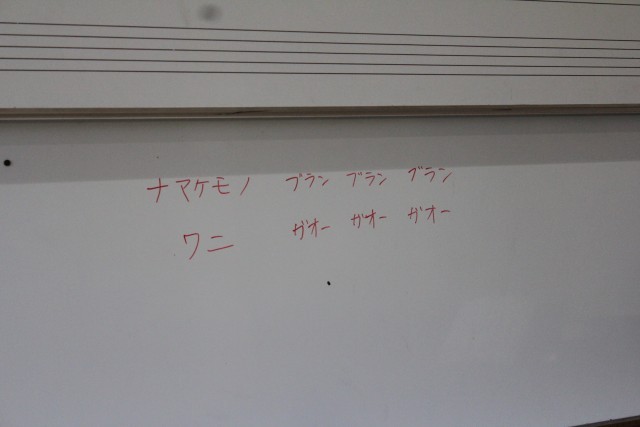 ナマケモノ ブラン ブラン ブラン
ワニ ガオー ガオー ガオー